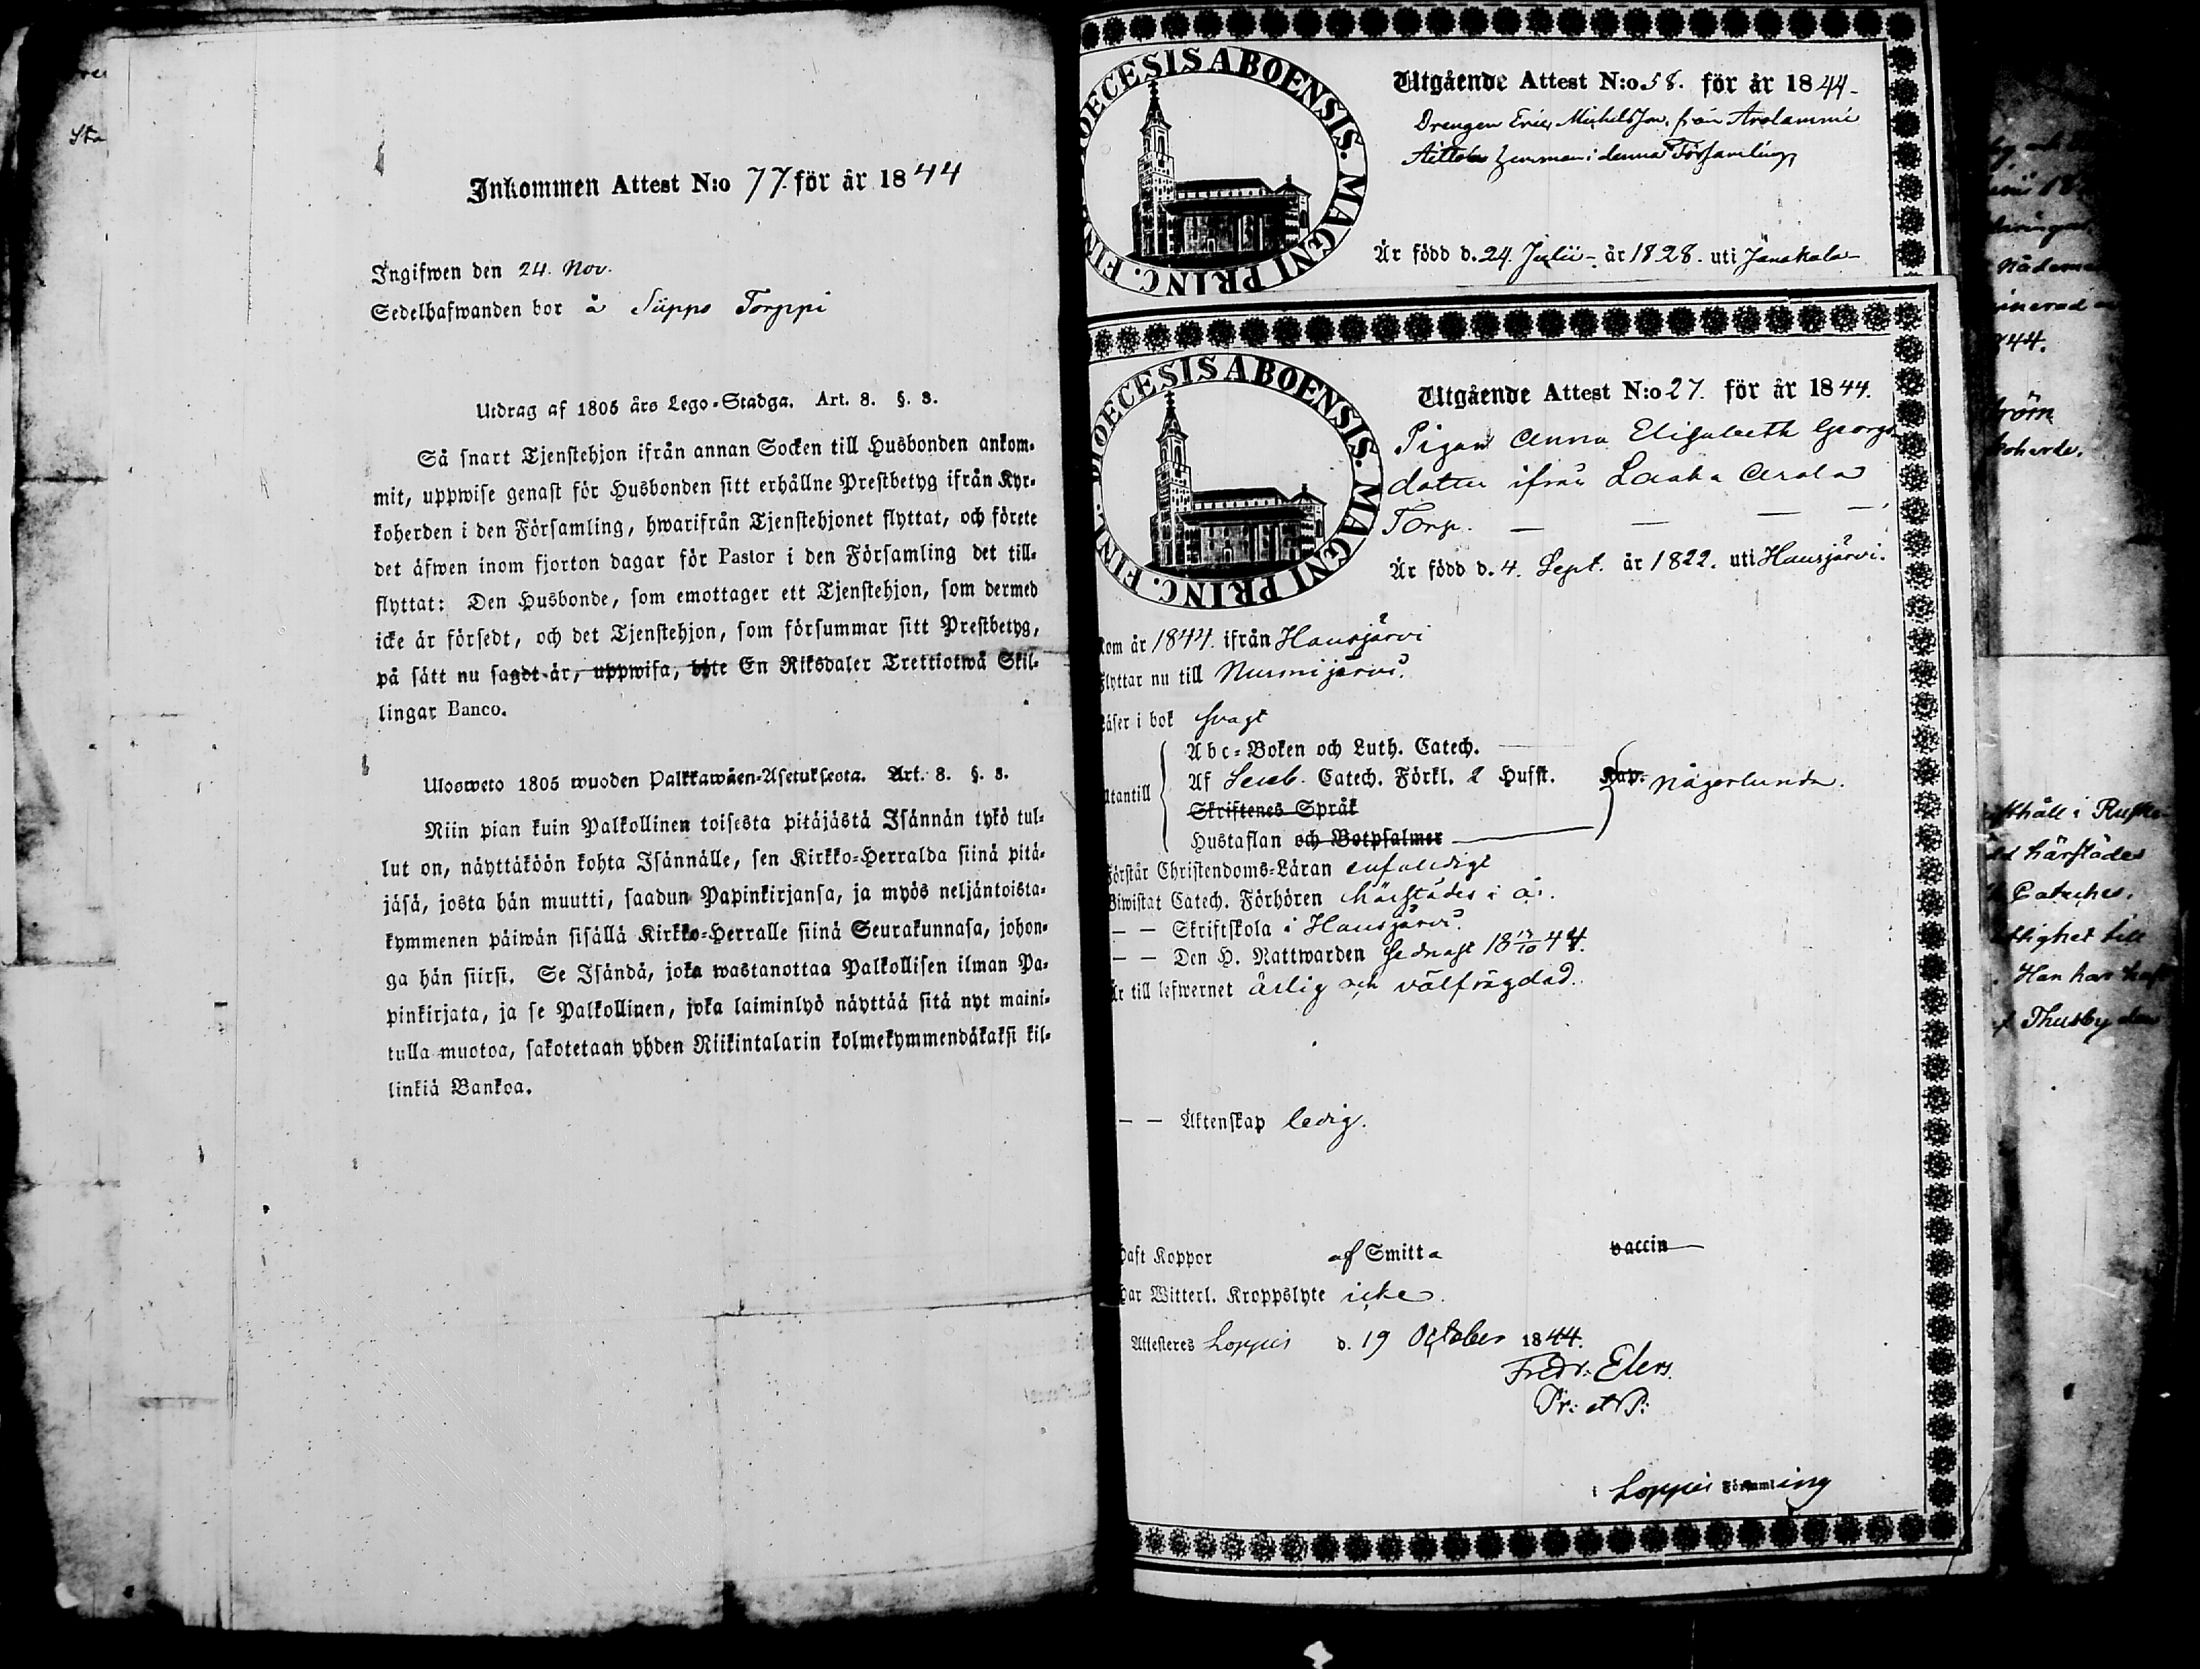 Sta
Inkommen Attest N:o 77. för år 1844
Ingifwen den 24. Nov.
Sedelhafwanden bor å Siippo Torppi
Utdrag af 1805 års Lego-Stadga. Art. 8. §. 8.
Så snart Tjenstehjon ifrån annan Socken till Husbonden ankom-
mit, uppwise genast för Husbonden sitt erhållne Prestbetyg ifrån Kyr-
koherden i den Församling, hwarifrån Tjenstehjonet flyttat, och förete
det äfwen inom fjorton dagar för Pastor i den Församling det till-
flyttat: Den Husbonde, som emottager ett Tjenstehjon, som dermed
icke är försedt, och det Tjenstehjon, som försummar sitt Prestbetyg,
på sätt nu sagdt är, uppwisa, böte En Riksdaler Trettiotwå Skil-
lingar Banco.
Ulosweto 1805 wuoden Palkkawäen-Asetuksesta. Art. 8. §. 8.
Niin pian kuin Palkollinen toisesta pitäjästä Isännän tykö tul-
lut on, näyttäköön kohta Isännälle, sen Kirkko-Herralda siinä pitä-
jäsä, josta hän muutti, saadun Papinkirjansa, ja myös neljäntoista-
kymmenen päiwän sisällä Kirkko-Herralle siinä Seurakunnasa, johon-
ga hän siirsi. Se Isändä, joka wastanottaa Palkollisen ilman Pa-
pinkirjata, ja se Palkollinen, joka laiminlyö näyttää sitä nyt maini-
tulla muotoa, sakotetaan yhden Riikintalarin kolmekymmendäkaksi kil-
linkiä Bankoa.
DIOECESIS ABOENSIS. MAGNI PRINC. FIN
Utgående Attest N:o 58. för år 1844
Drengen Eric Michelsson, från Arolammi
hemman i denna Församling
Är född d. 24. Julii år 1828. uti Janakala
DIOECESIS ABOENSIS. MAGNI PRINC. FIN
Utgående Attest N:o 27. för år 1844.
Pigan Anna Elisabeth Georgs
dotter ifrån Laaka Arola
Torp.
Är född d. 4. Sept. år 1822. uti Hausjärvi.
Kom år 1844. ifrån Hausjärvi
Flyttar nu till Nurmijärvi.
Läser i bok svagt
Utantill
Abc-Boken och Luth. Catech.
Af Seeb. Catech. Förkl. 2 Hufst. Kap. någorlunda.
Skriftenes Språk
Hustaflan och Botpsalmer
Förstår Christendoms-Läran enfaldigt
Biwistat Catech. Förhören härstädes i år.
Skriftskola i Hausjärvi.
Den H. Nattwarden sednast 18 /10 44.
Är till lefwernet ärlig och välfrägdad.
Äktenskap ledig.
Haft Koppor af Smitta vaccin
Har Witterl. Kroppslyte icke.
Attesteres Loppis d. 19 October 1844.
Fredr: Elers.
Pr: et P:
i Loppis Församling
1844.
koherde.
härstädes
Cateches.
Han har haft
af Thusby den